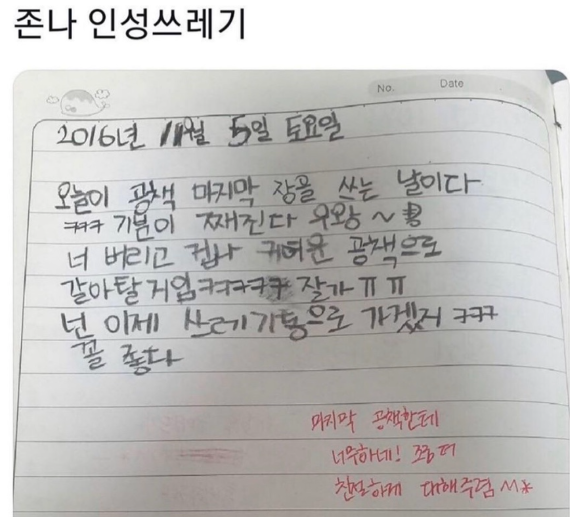 존나 인성쓰레기
No. Date
2016년 11월 5일 토요일
오늘이 공책 마지막 장을 쓰는 날이다
ㅋㅋㅋ 기분이 째진다 우왕~
너 버리고 겁나 귀여운 공책으로
갈아탈거임ㅋㅋㅋㅋㅋ 잘가ㅠㅠ
넌 이제 쓰레기통으로 가겠지 ㅋㅋㅋ
꼴 좋다
마지막 공책한테
너무하네! 좀 더
친절하게 대해주렴